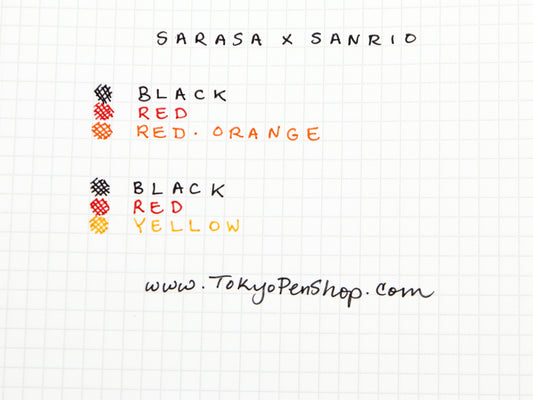 SARASA X SANRIO
BLACK
RED
RED. ORANGE
BLACK
RED
YELLOW
www.TokyoPenShop.com